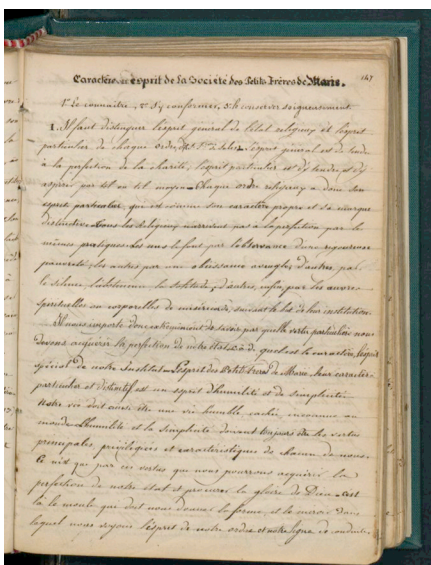 147
Caractère et esprit de la Société des Petits Frères de Marie.
1° Le connaitre, 2° S'y conformer, 3° le conserver soigneusement.
1. Il faut distinguer l'esprit général de l'état religieux et l'esprit
particulier de chaque ordre, dit St de Sales. L'esprit général est de tendre
à la perfection de la charité, l'esprit particulier est d'y tendre et d'y
aspirer par tel ou tel moyen. Chaque ordre religieux a donc son
esprit particulier, qui est comme son caractère propre et sa marque
distinctive. Tous les religieux n'arrivent pas à la perfection par les
mêmes pratiques. Les uns le font par l'observance d'une rigoureuse
pauvreté, les autres par une obéissance aveugle, d'autres, par
le silence, l'abstinence, la solitude, d'autres, enfin, par les œuvres
spirituelles ou corporelles de miséricorde, suivant le but de leur institution.
Il nous importe donc extrêmement de savoir par quelle vertu particulière nous
devons acquérir la perfection de notre état, c. à d. quel est le caractère, l'esprit
spécial de notre Institut. L'esprit des Petits Frères de Marie, leur caractère
particulier et distinctif est un esprit d'humilité et de simplicité.
Notre vie doit ainsi être une vie humble, cachée, inconnue au
monde. L'humilité et la simplicité doivent toujours être les vertus
principales, privilégiées et caractéristiques de chacun de nous.
Ce n'est que par ces vertus que nous pourrons acquérir la
perfection de notre état et procurer la gloire de Dieu. C'est
là le moule qui doit nous donner la forme, et le miroir dans
lequel nous voyons l'esprit de notre ordre et notre ligne de conduite.